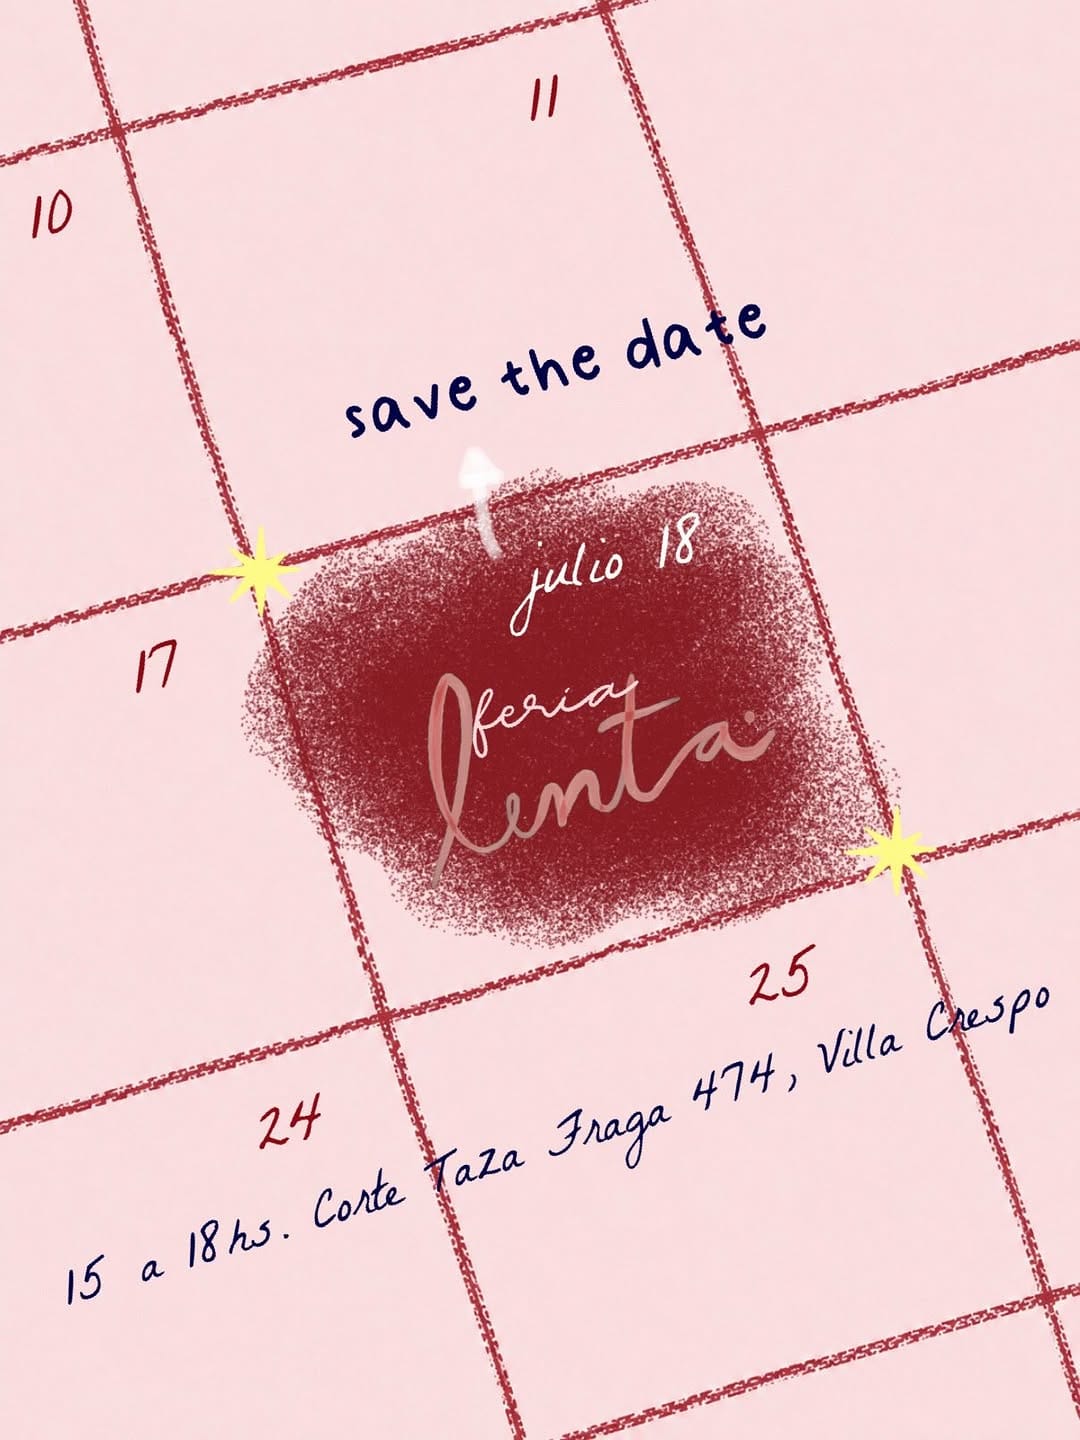 11
10
save the date
julio 18
feria
lenta
17
25
24
15 a 18hs. Corte Taza Fraga 474, Villa Crespo